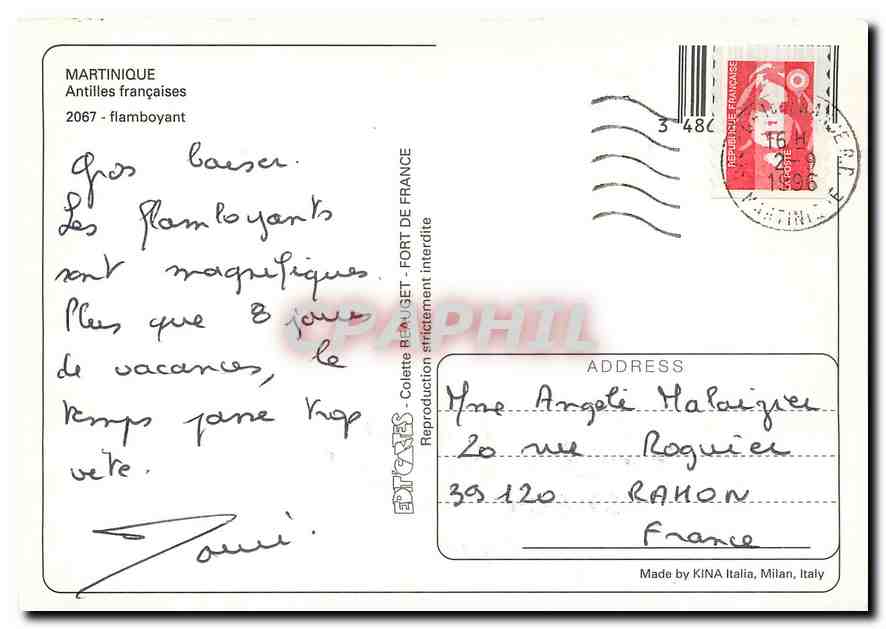 MARTINIQUE
Antilles françaises
2067 - flamboyant
Gros baiser.
Les flamboyants
sont magnifiques.
Plus que 8 jours
de vacances, le
temps passe trop
vite.
EDIT'CARTES - Colette BEAUGET - FORT DE FRANCE
Reproduction strictement interdite
3 486
REPUBLIQUE FRANÇAISE
LA POSTE
16 H
2-9
1996
MARTINIQUE
CPAPHIL
ADDRESS
Mme Angèle Malaizier
20 rue Roguier
39120 RAHON
France
Made by KINA Italia, Milan, Italy